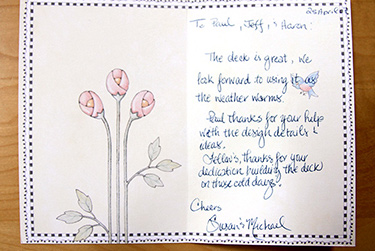 To Paul, Jeff, & Aaron:
The deck is great, we
look forward to using it as
the weather warms.
Paul thanks for your help
with the design details &
ideas.
Fellow's, thanks for your
dedication building the deck
on those cold days.
Cheers
Susan & Michael